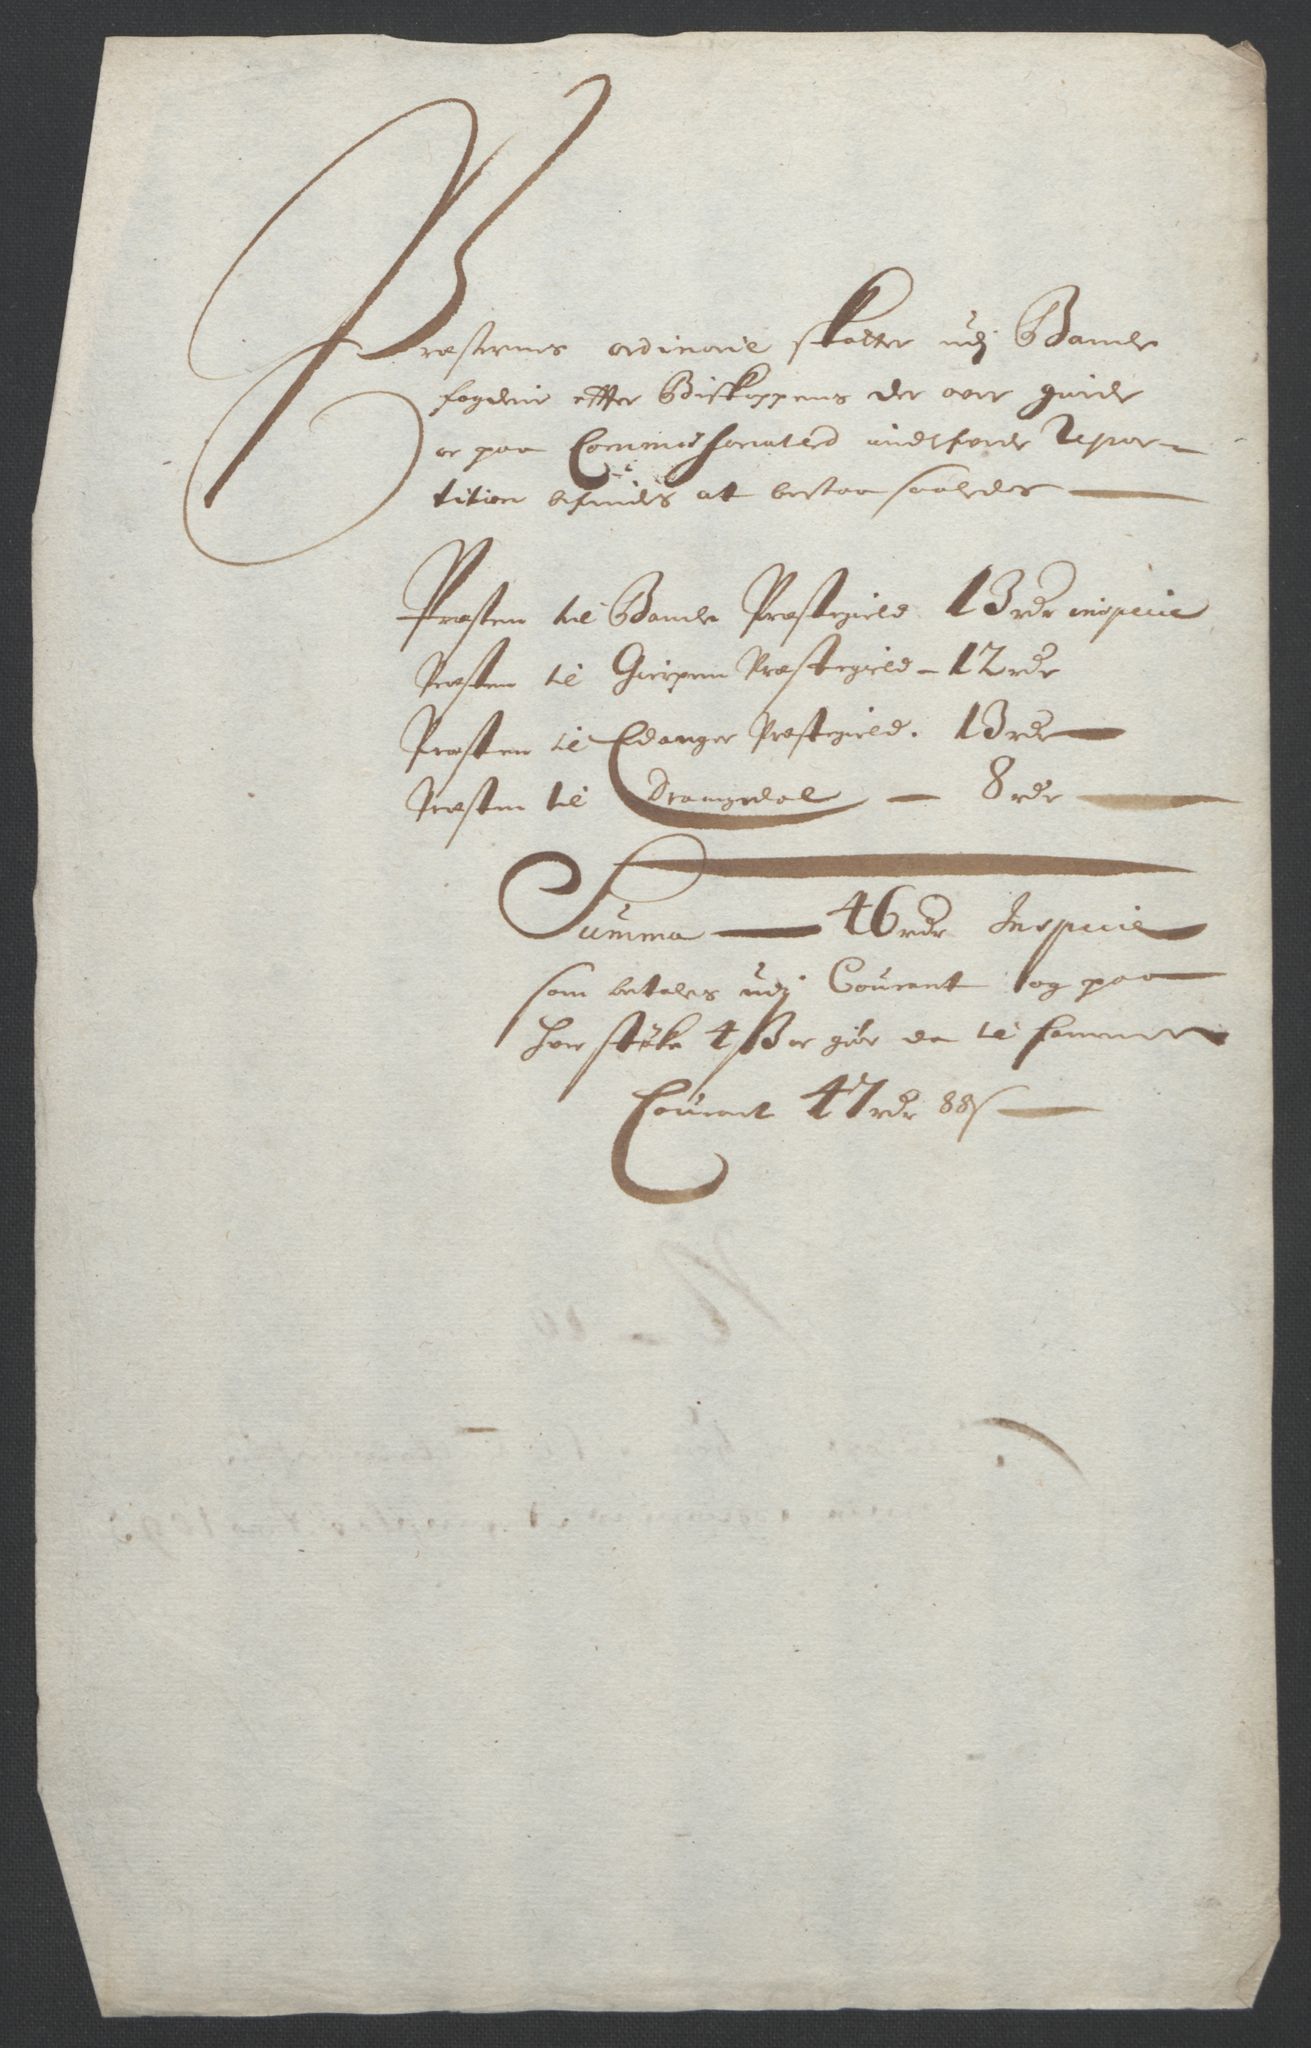 Præsternes ordinarie skatter udj Bamble
fogderie effter Biskoppens der over giorde
oc paa Commissariated indlefverede Repar-
tition befindes at bestaa saaledes
Præsten til Bamble Præstegield 13 rdr inspecie
Præsten til Gierpen Præstegield - 12 rdr
Præsten til Edanger Præstegield. 13 rdr
Præsten til Drangedal - 8 rdr
Summa - 46 rdr Inspecie
som betales udj Courant og paa
hver støcke 4 s oc giør da til sammen
Courant 47 rdr 88 s